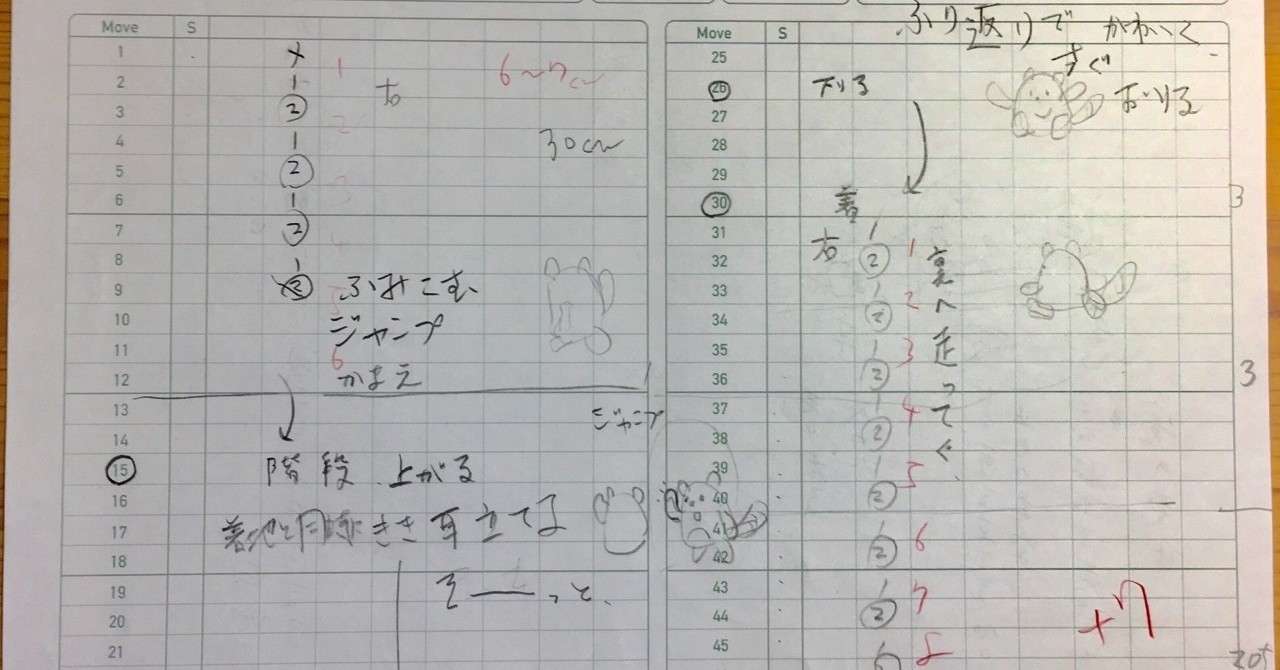 Move S
1 ×
2 1 1 右 6~7cm
3 ②
4 1 2 30cm
5 ②
6 1 3
7 ②
8 1
9 ② ふみこむ
10 ジャンプ
11 6
12 かまえ
13
14
15 階段 上がる
16
17 着地と同時 きき耳立てる
18
19 そ──っと、
20
21
ふり返りで かわいく
Move S
25 すぐ
26 下りる おりる
27
28
29
30 着 3
31 1
32 右 ② 1
33 1 2
34 ②
35 1 3
36 ② 3
37 1 4
ジャンプ
38 ②
39 1 5
40 ②
41 1 6
42 ②
43 1 7
44 ② +7
45 8
裏へ走ってく